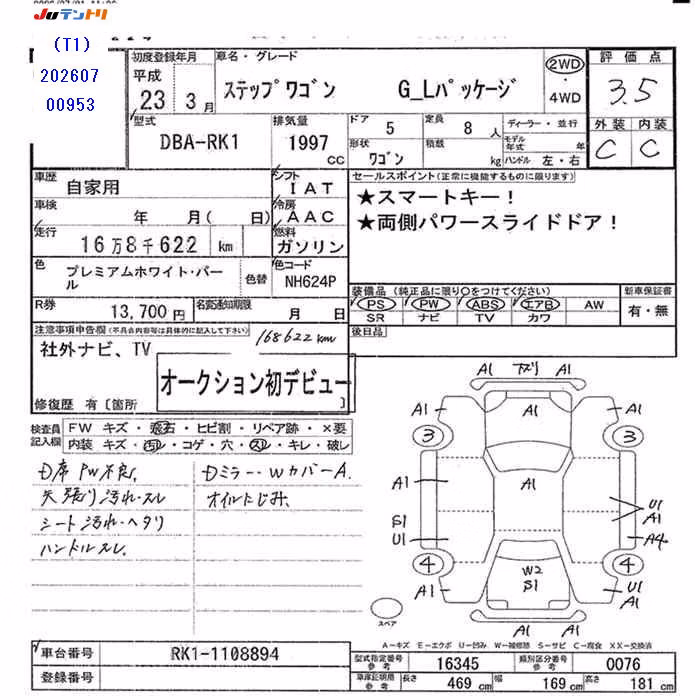 Juテントリ
(T1)
202607
00953
初度登録年月
平成
23年 3月
車名・グレード
ステップワゴン G_Lパッケージ
2WD
・
4WD
評価点
3.5
外装 内装
C C
型式
DBA-RK1
排気量
1997
cc
ドア
5
定員
8 人
形状
ワゴン
積載
kg
ディーラー・並行
モデル年式 年
ハンドル 左・右
車歴
自家用
シフト
IAT
車検
年 月( 日)
冷房
AAC
走行
16万8千622 km
燃料
ガソリン
色
プレミアムホワイト・パール
色替
色コード
NH624P
R券
13,700円
名変通知期限
月 日
セールスポイント(正常に機能するものに限ります)
★スマートキー!
★両側パワースライドドア!
装備品(純正品に限り○をつけてください)
PS PW ABS エアB AW
SR ナビ TV カワ
新車保証書
有・無
後日品
注意事項申告欄(不具合内容等は具体的に記入して下さい)
168622km
社外ナビ、TV
オークション初デビュー
修復歴 有〔箇所 〕
検査員記入欄
FW キズ・飛石・ヒビ割・リペア跡・×要
内装 キズ・汚れ・コゲ・穴・スレ・キレ・破し
D席 PW不良、
天張り汚れ・スレ
シート汚れ・ヘタリ
ハンドルスレ、
Dミラー・WカバーA、
オイルにじみ、
A1 下ズリ A1
A1 A1 A1
3 3
A1 A1
S1 U1
A1
U1 A4
4 W2 4
S1
A1 U1
A1
A1
スペア
A―キズ E―エクボ U―凹み W―補修跡 S―サビ C―腐食 XX―交換済
車台番号
RK1-1108894
登録番号
型式指定番号
参考
16345
類別区分番号
参考
0076
車庫証明用
参考
長さ 469 cm 幅 169 cm 高さ 181 cm